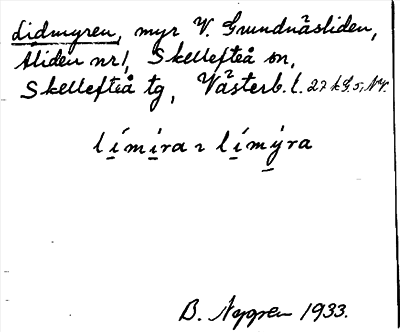 Lidmyren, myr V. Grundnäsliden,
Åliden nr 1, Skellefteå sn,
Skellefteå tg, Västerb. l. 27 k G. 5, Ny.
límíra ɿ límýra
B. Nygren 1933.